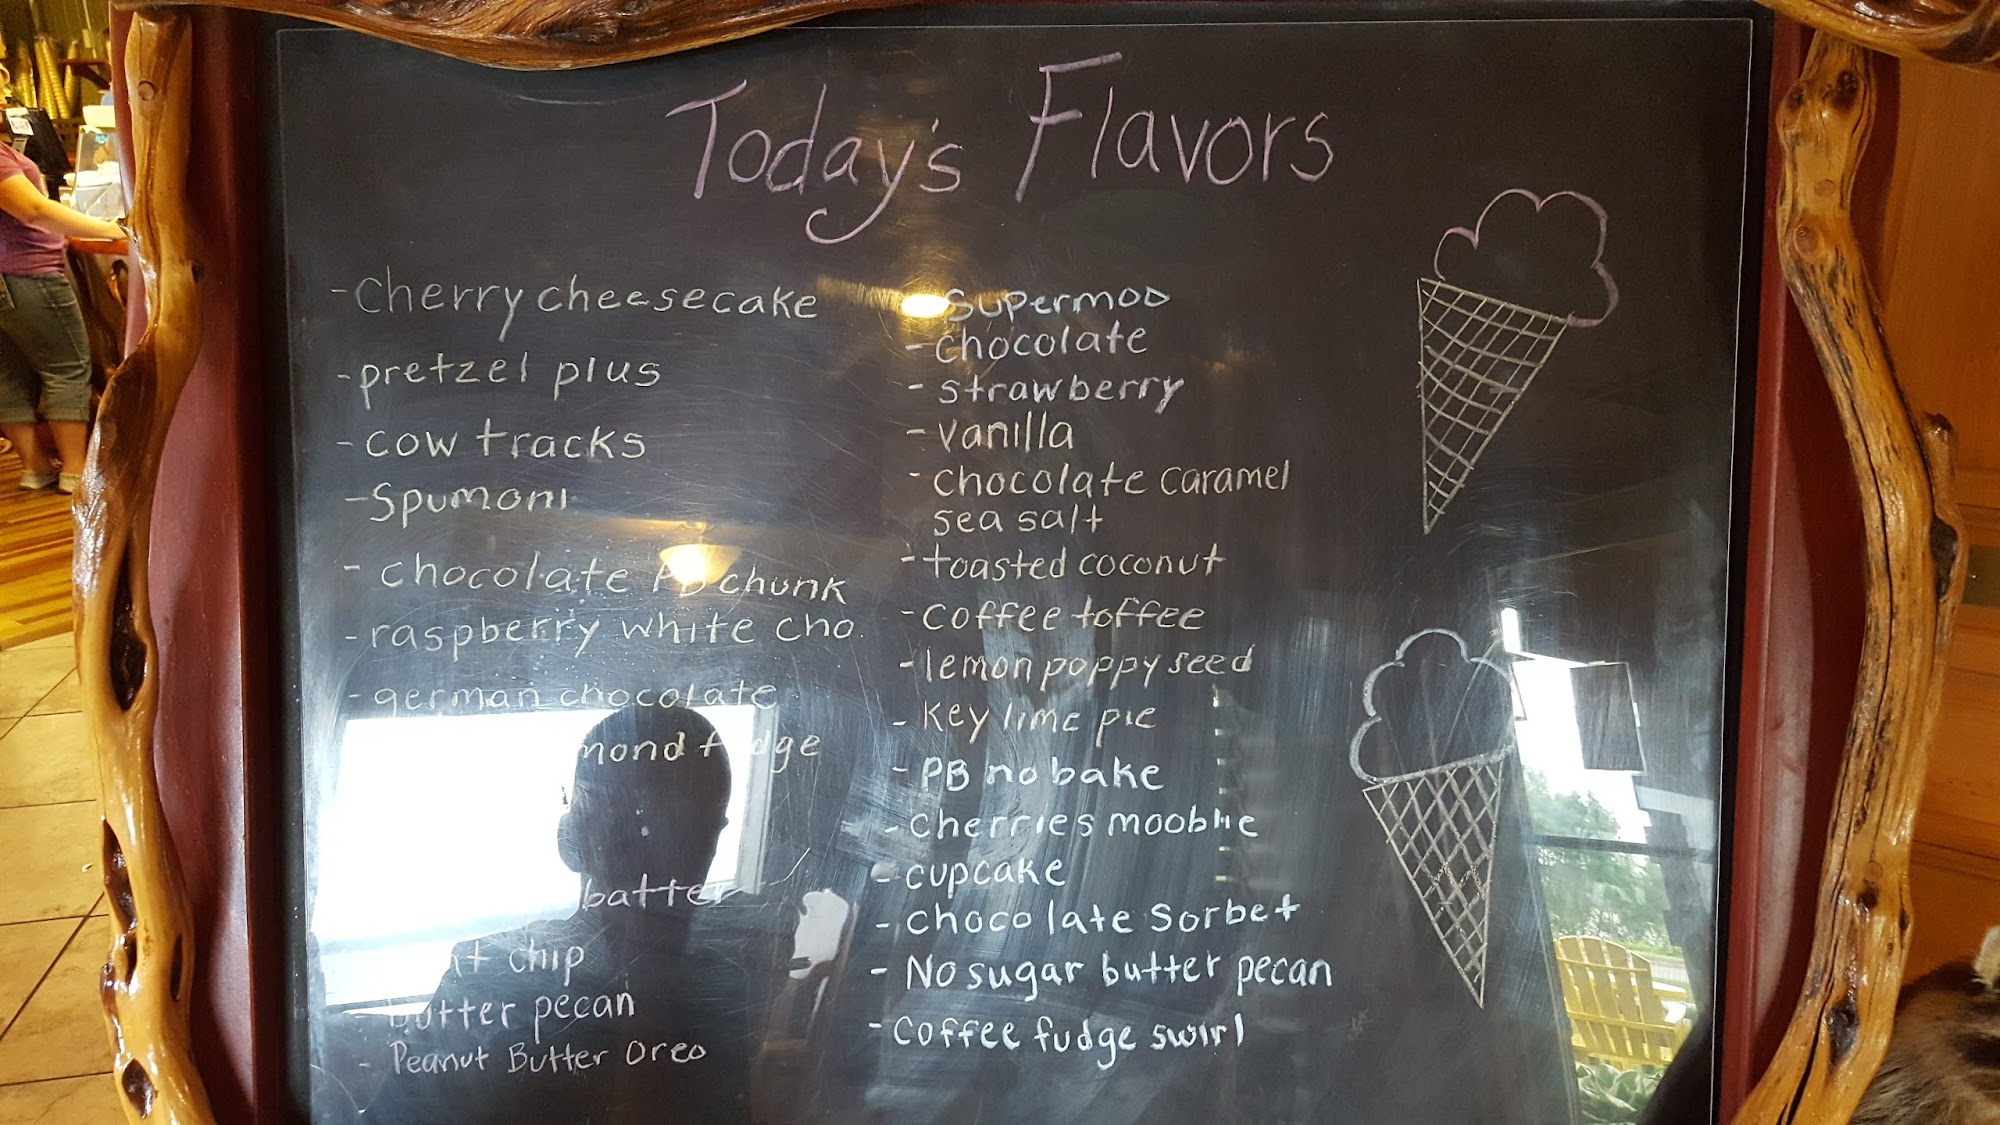 Today's Flavors
- Cherry cheesecake
- pretzel plus
- cow tracks
- Spumoni
- chocolate PB chunk
- raspberry white cho.
- german chocolate
fudge
batter
chip
- butter pecan
- Peanut Butter Oreo
Supermoo
- chocolate
- strawberry
- vanilla
- chocolate caramel
sea salt
- toasted coconut
- coffee toffee
- lemon poppy seed
- Key lime pie
- PB no bake
- Cherries moobile
- cupcake
- chocolate Sorbet
- No sugar butter pecan
- Coffee fudge swirl